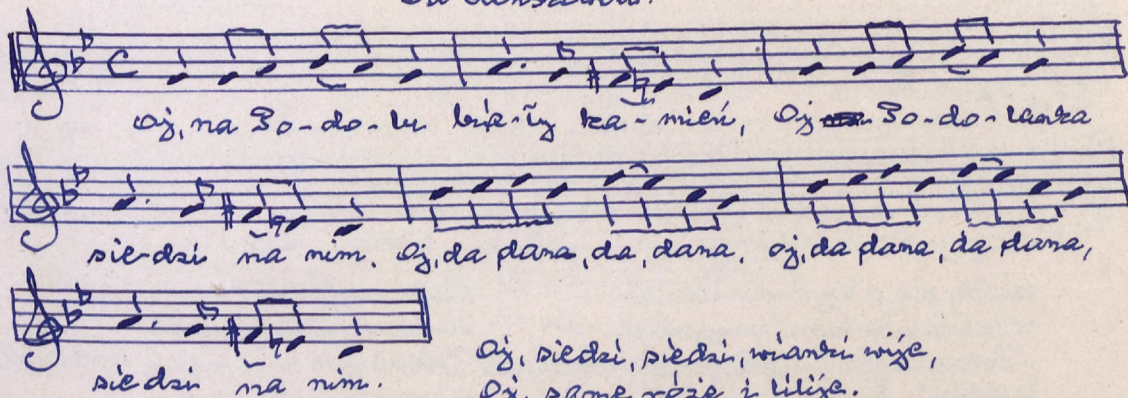 Oj, na Podolu biały kamień, Oj Podolanka
siedzi na nim. Oj, da dana, da, dana. oj, da dana, da dana,
siedzi na nim.
Oj, siedzi, siedzi, wianki wije,
Oj, same róże i lilije.